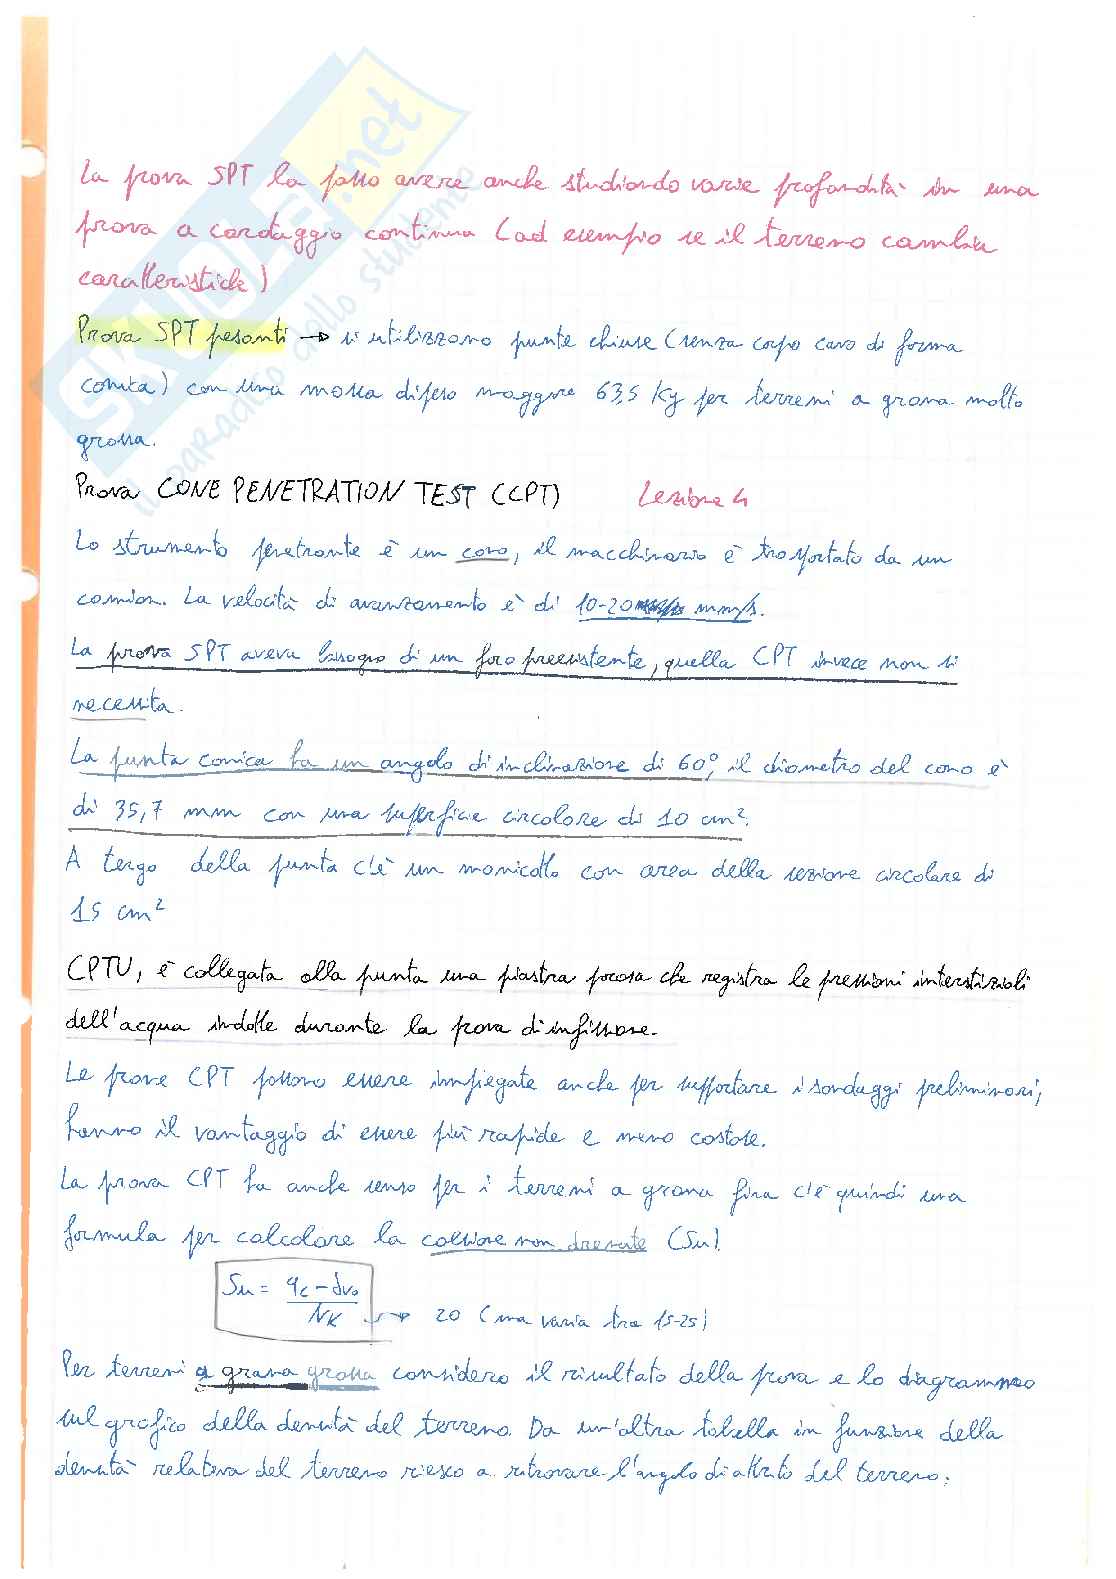 La prova SPT la posso avere anche studiando varie profondità in una
prova a carotaggio continua (ad esempio se il terreno cambia
caratteristiche)
Prova SPT pesanti → si utilizzano punte chiuse (senza corpo cavo di forma
conica) con una massa di peso maggiore 63,5 Kg per terreni a grana molto
grossa.
Prova CONE PENETRATION TEST (CPT) Lezione 4
Lo strumento penetrante è un cono, il macchinario è trasportato da un
camion. La velocità di avanzamento è di 10-20 mm/s.
La prova SPT aveva bisogno di un foro preesistente, quella CPT invece non si
necessita.
La punta conica ha un angolo di inclinazione di 60°, il diametro del cono è
di 35,7 mm con una superficie circolare di 10 cm².
A tergo della punta c'è un manicotto con area della sezione circolare di
15 cm²
CPTU, è collegata alla punta una piastra porosa che registra le pressioni interstiziali
dell'acqua indotte durante la prova di infissione.
Le prove CPT possono essere impiegate anche per supportare i sondaggi preliminari,
hanno il vantaggio di essere più rapide e meno costose.
La prova CPT ha anche senso per i terreni a grana fina c'è quindi una
formula per calcolare la coesione non drenata (Su).
Su = (qc - δv₀) / NK → 20 (ma varia tra 15-25)
Per terreni a grana grossa considero il risultato della prova e lo diagrammo
sul grafico della densità del terreno. Da un'altra tabella in funzione della
densità relativa del terreno riesco a ritrovare l'angolo di attrito del terreno:
SKUOLA.net
il paradiso dello studente